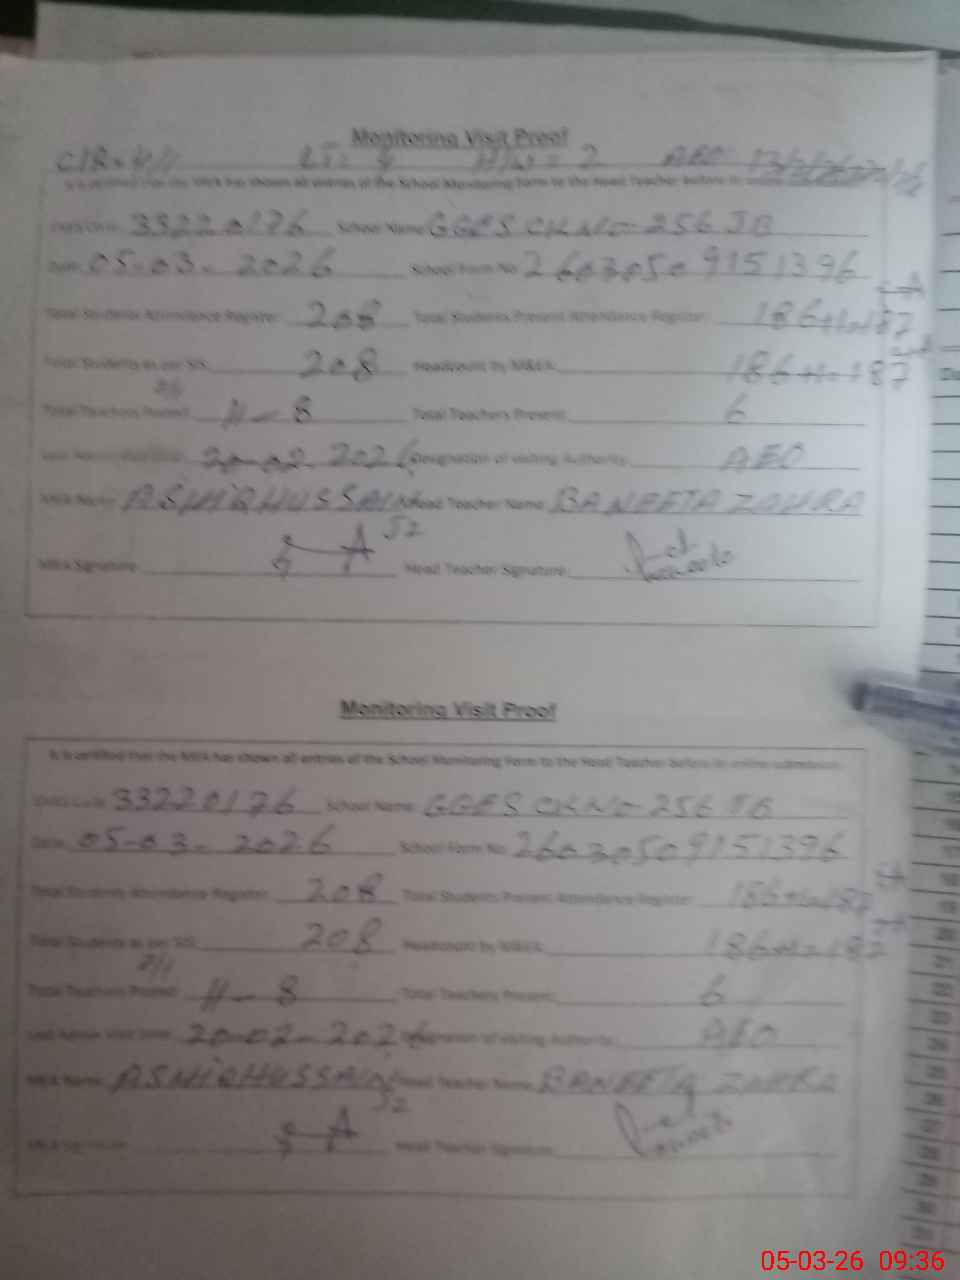 Monitoring Visit Proof
It is certified that the MEA has shown all entries of the School Monitoring Form to the Head Teacher before its online
33220176 School Name GGES CK NO 256 JB
Date 05-03-2026 School Form No 2603050 9151396
Total Students Attendance Register 208 Total Students Present Attendance Register 186+1=187
Total Students as per SIS 208 Headcount by MEA 186+1=187
Total Teachers Posted 11-8 Total Teachers Present 6
20-02-2026 Designation of visiting Authority AEO
MEA Name ASHIQ HUSSAIN Head Teacher Name BANEETA ZAHRA
MEA Signature Head Teacher Signature
Monitoring Visit Proof
It is certified that the MEA has shown all entries of the School Monitoring Form to the Head Teacher before its online submission
33220176 School Name GGES CK NO 256 JB
Date 05-03-2026 School Form No 2603050 9151396
Total Students Attendance Register 208 Total Students Present Attendance Register 186+1=187
Total Students as per SIS 208 Headcount by MEA 186+1=187
Total Teachers Posted 11-8 Total Teachers Present 6
Last Admin Visit Date 20-02-2026 Designation of visiting Authority AEO
MEA Name ASHIQ HUSSAIN Head Teacher Name BANEETA ZAHRA
Head Teacher Signature
05-03-26 09:36